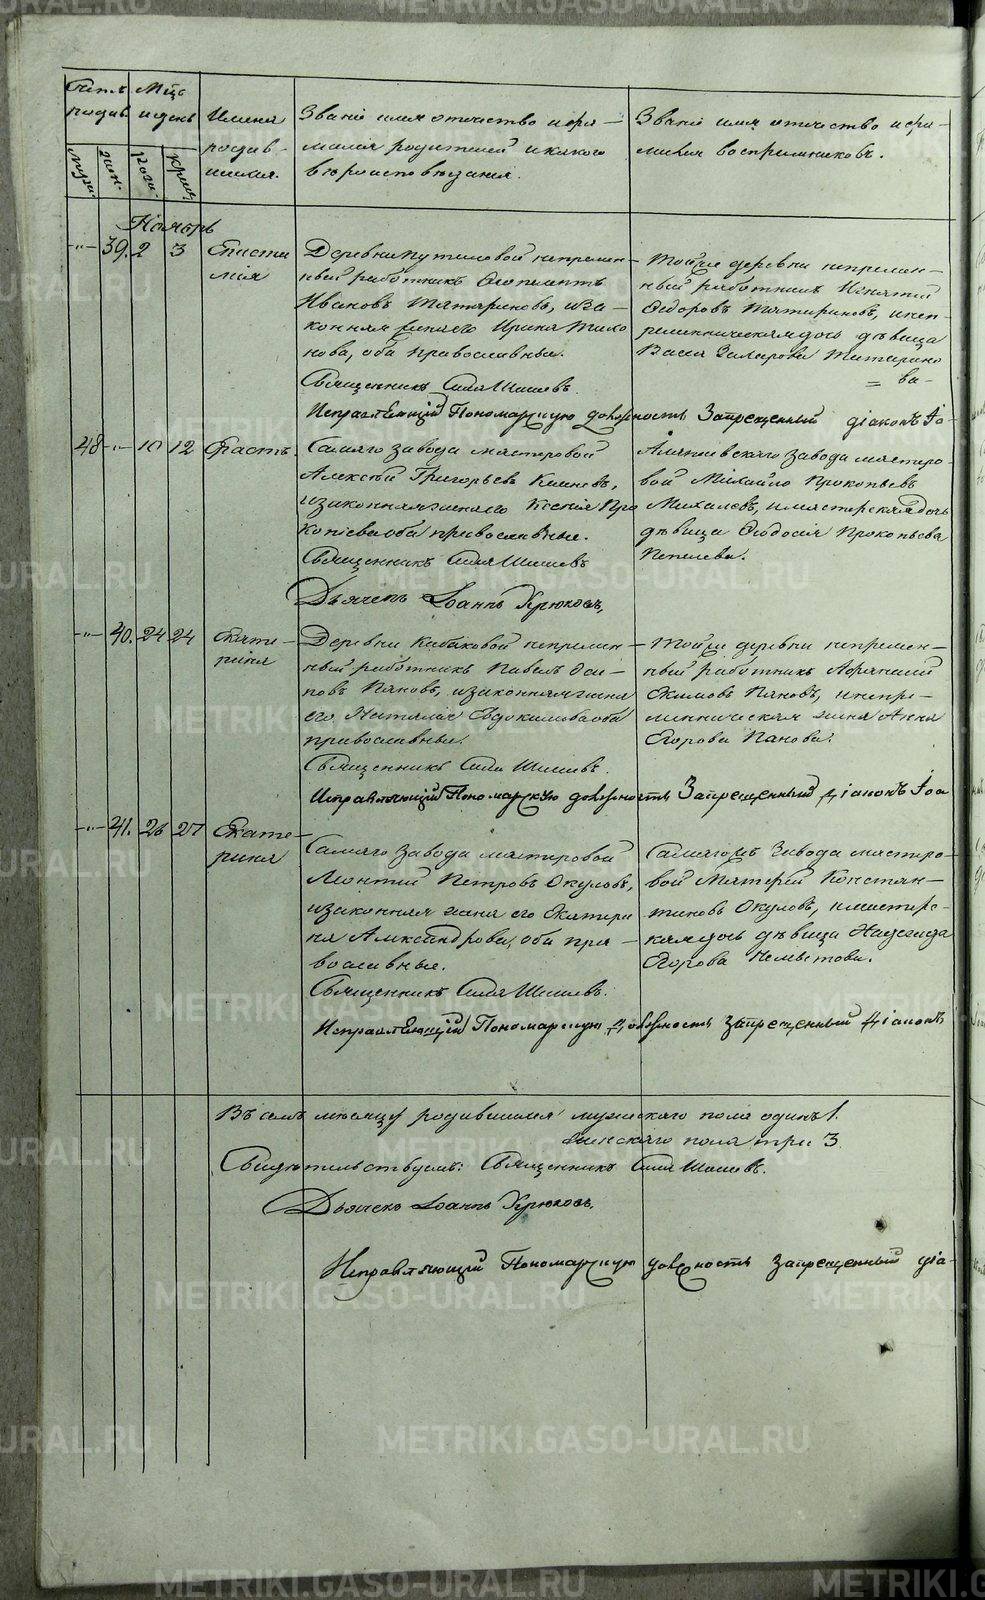 METRIKI.GASO-URAL.RU
Счетъ родив.
Мѣс. и день
Имена родив-
шихся.
Званіе имя отчество и фа-
милія родителей и какого
вѣроисповѣданія.
Званіе имя отчество и фа-
милія воспріемниковъ.
муж. жен. рож. крещ.
Ноябрь
-"- 39. 2 3
Деревни Путиловой непремен-
ный работникъ
Ивановъ Татариновъ, и за-
конная жена его Ирина Тихо
нова, оба православные.
Священникъ Сила Шишевъ.
Исправляющій Пономарскую должность Запрещенный діаконъ Іо-
Тойже деревни непремен-
ный работникъ Игнатій
Ѳедоровъ Татариновъ, и неп-
ременническая дочь дѣвица
Васса Захарова Татарино
= ва-
48 -"- 10 12
Самаго завода мастеровой
Алексѣй Григорьевъ
и законная жена его Ксенія Про
копіева оба православные.
Священникъ Сила Шишевъ
Дьячекъ Іоаннъ Крюковъ,
Алапаевскаго завода мастеро-
вой Михайло Прокопьевъ
Михалевъ, и мастерская дочь
дѣвица Ѳеодосія Прокопьева
Пепелева.
-"- 40. 24 24 Екате-
рина
Деревни Кабаковой непремен-
ный работникъ Павелъ Оси-
повъ Пановъ, и законная жена
его Наталія Евдокимова оба
православные.
Священникъ Сила Шишевъ.
Исправляющій Пономарскую должность Запрещенный діаконъ Іоа
Тойже деревни непремен-
ный работникъ Афанасій
Екимовъ Пановъ, и непре-
менническая жена Анна
Егорова Панова.
-"- 41. 26 27 Екате-
рина
Самаго завода мастеровой
Леонтій Петровъ Окуловъ,
и законная жена его Екатери
на Александрова, оба пра-
вославные.
Священникъ Сила Шишевъ.
Исправляющій Пономарскую должность Запрещенный діаконъ
Самагожъ Завода мастеро-
вой Матвей Констан-
тиновъ Окуловъ, и мастерс-
кая дочь дѣвица Надежда
Егорова
Въ семъ месяцѣ родившихся мужескаго пола одинъ 1.
женскаго пола три 3
Свидѣтельствуемъ: Священникъ Сила Шишевъ.
Дьячекъ Іоаннъ Крюковъ,
Исправляющій Пономарскую должность Запрещенный діа-